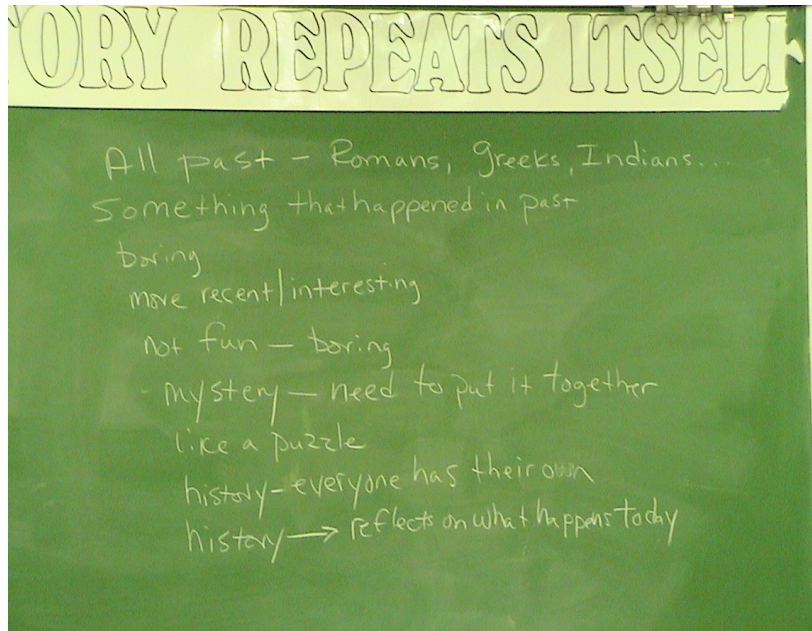 ORY REPEATS ITSELF
All past - Romans, Greeks, Indians...
Something that happened in past
boring
more recent/interesting
not fun - boring
- mystery - need to put it together
like a puzzle
history - everyone has their own
history → reflects on what happens today